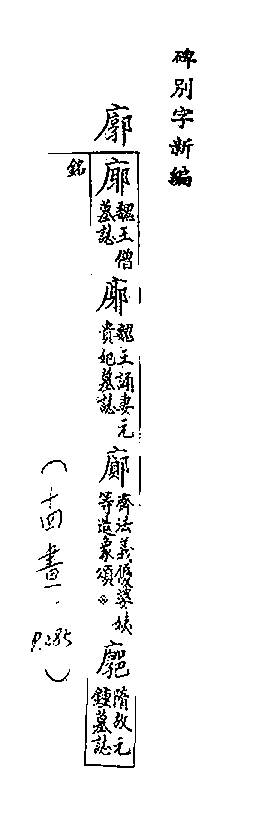 碑別字新編
廓
魏王僧
墓誌
銘
魏王誦妻元
貴妃墓誌
齊法義優婆姨
等造象頌
隋故元
鍾墓誌
(十四畫. P.285)